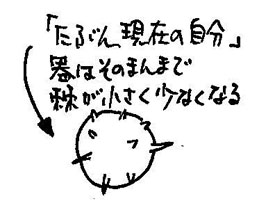 「たぶん現在の自分」
器はそのまんまで
棘が小さく少なくなる